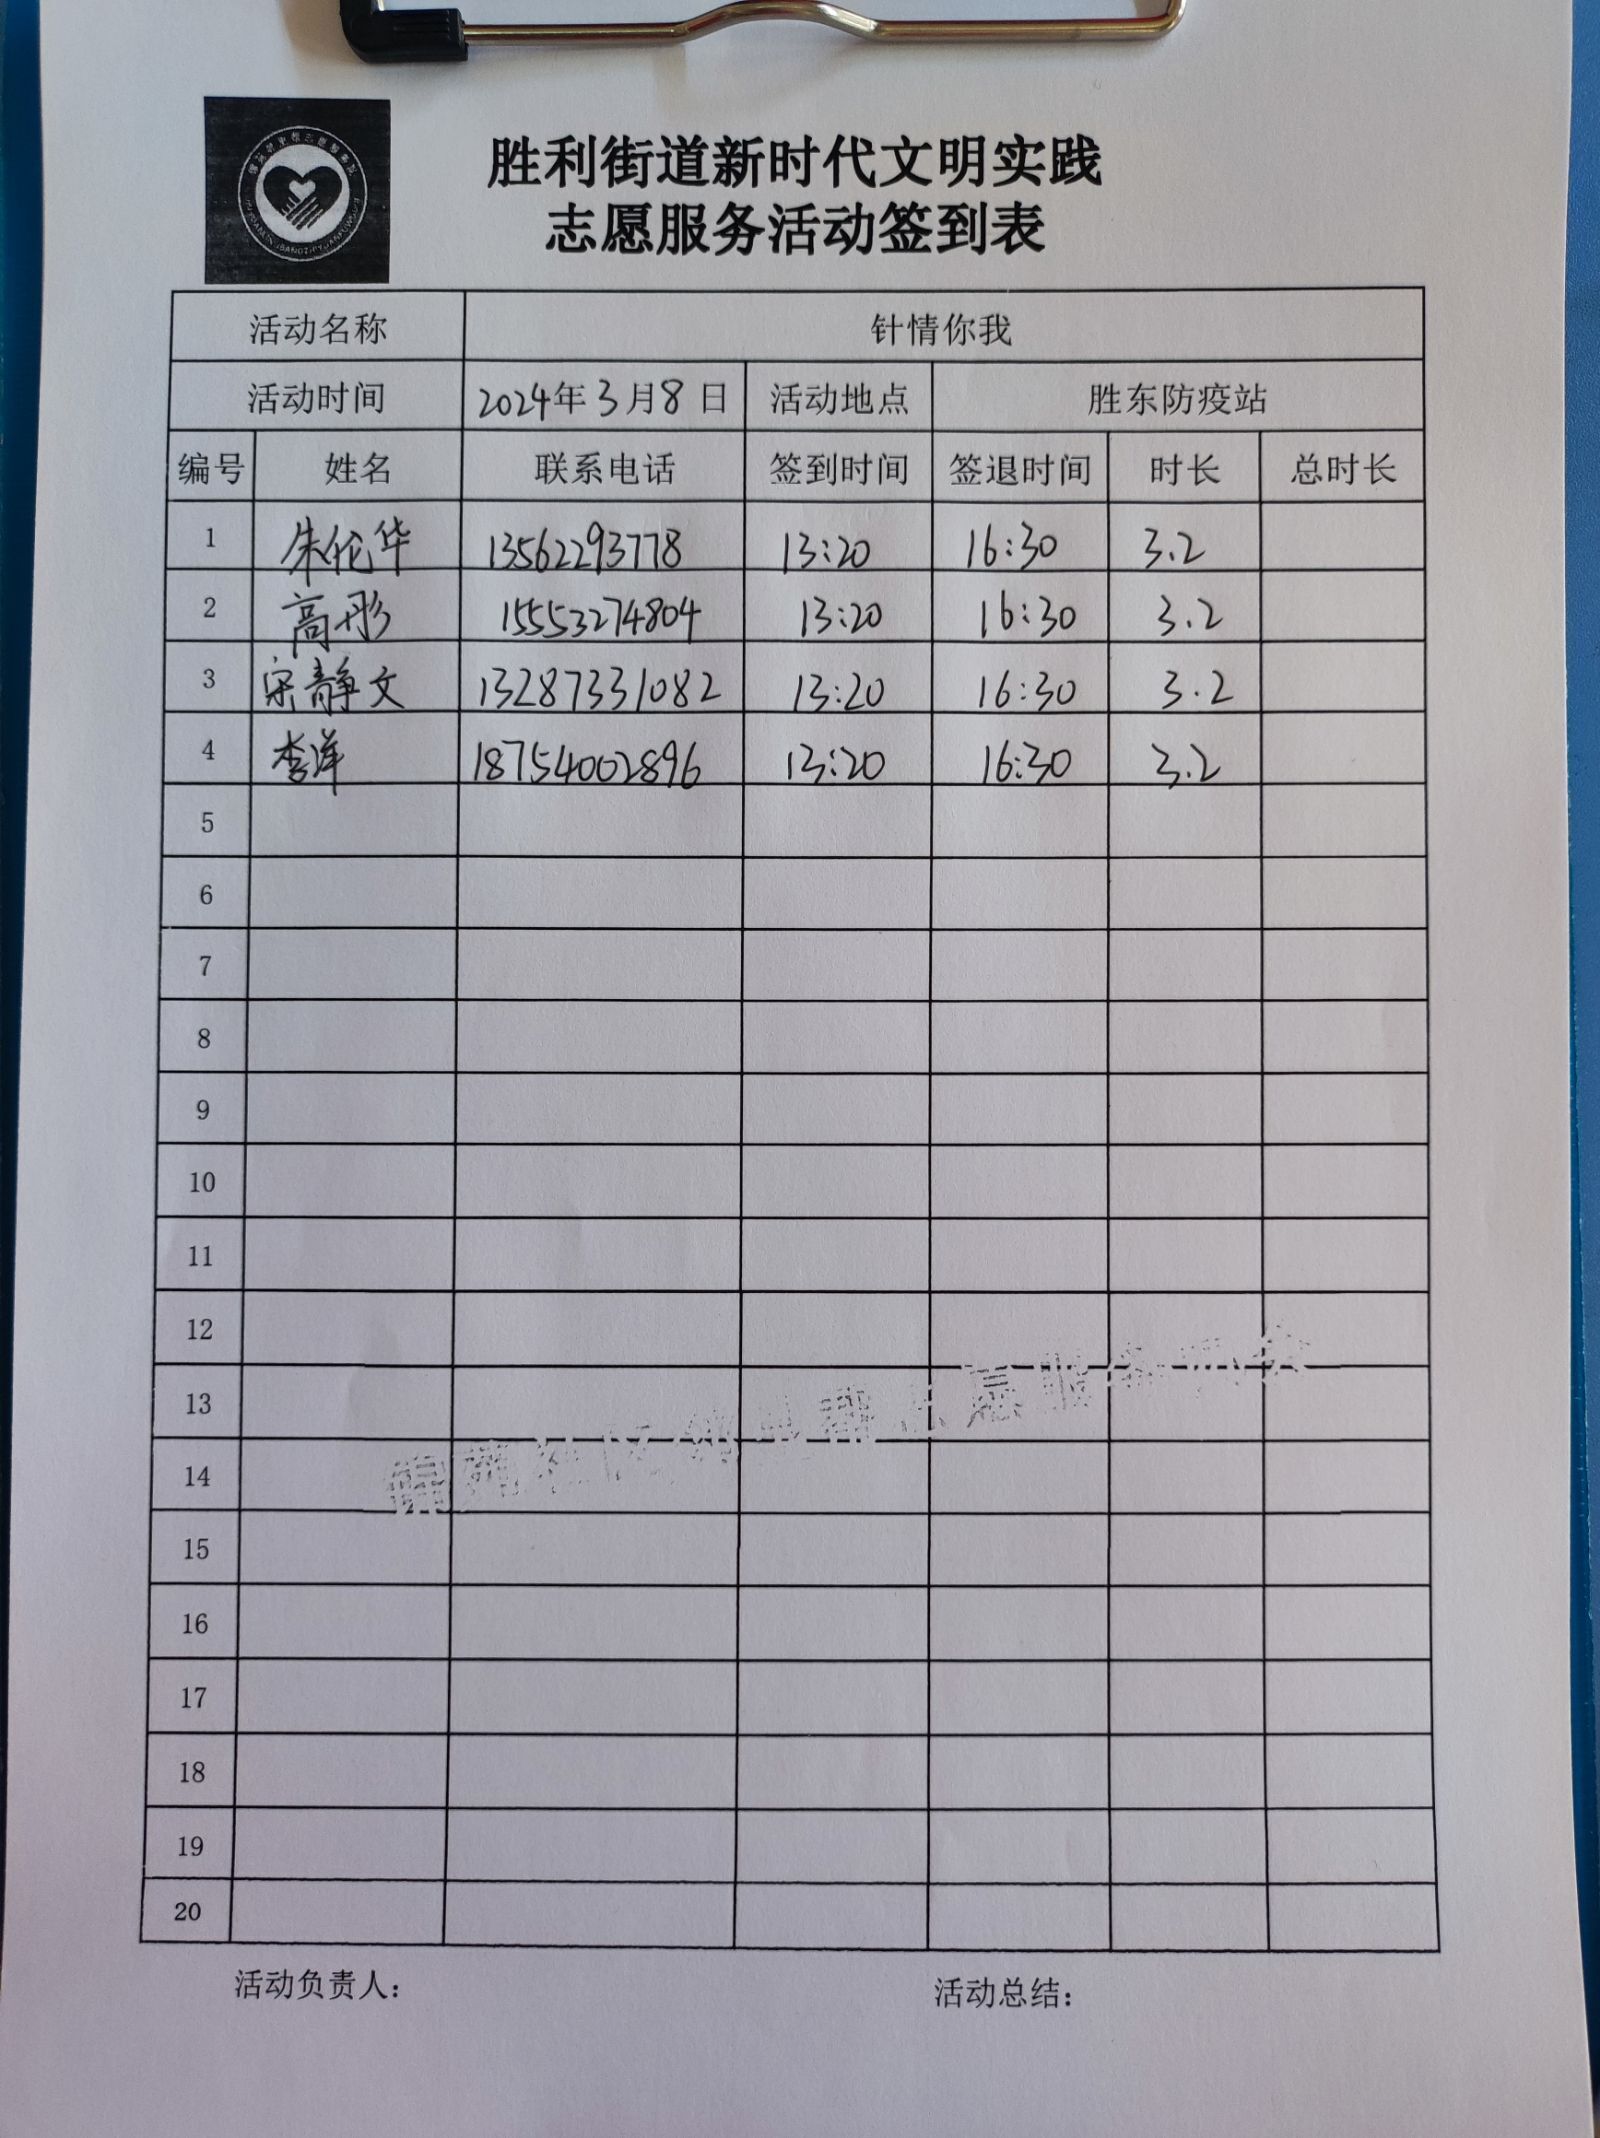 胜利街道新时代文明实践
志愿服务活动签到表
活动名称 针情你我
活动时间 2024年3月8日 活动地点 胜东防疫站
编号 姓名 联系电话 签到时间 签退时间 时长 总时长
1 朱伦华 13562293778 13:20 16:30 3.2
2 高彤 15553274804 13:20 16:30 3.2
3 宋静文 13287331082 13:20 16:30 3.2
4 李洋 18754002896 13:20 16:30 3.2
5
6
7
8
9
10
11
12
13
14
15
16
17
18
19
20
活动负责人： 活动总结：